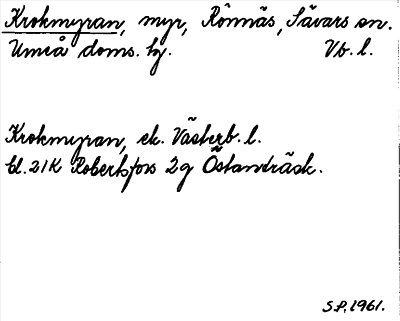 Krokmyran, myr, Rönnäs, Sävars sn.
Umeå doms. hg. Vb. l.
Krokmyran, ek. Västerb. l.
bl. 21K Robertsfors 2g Östanträsk.
S.P. 1961.